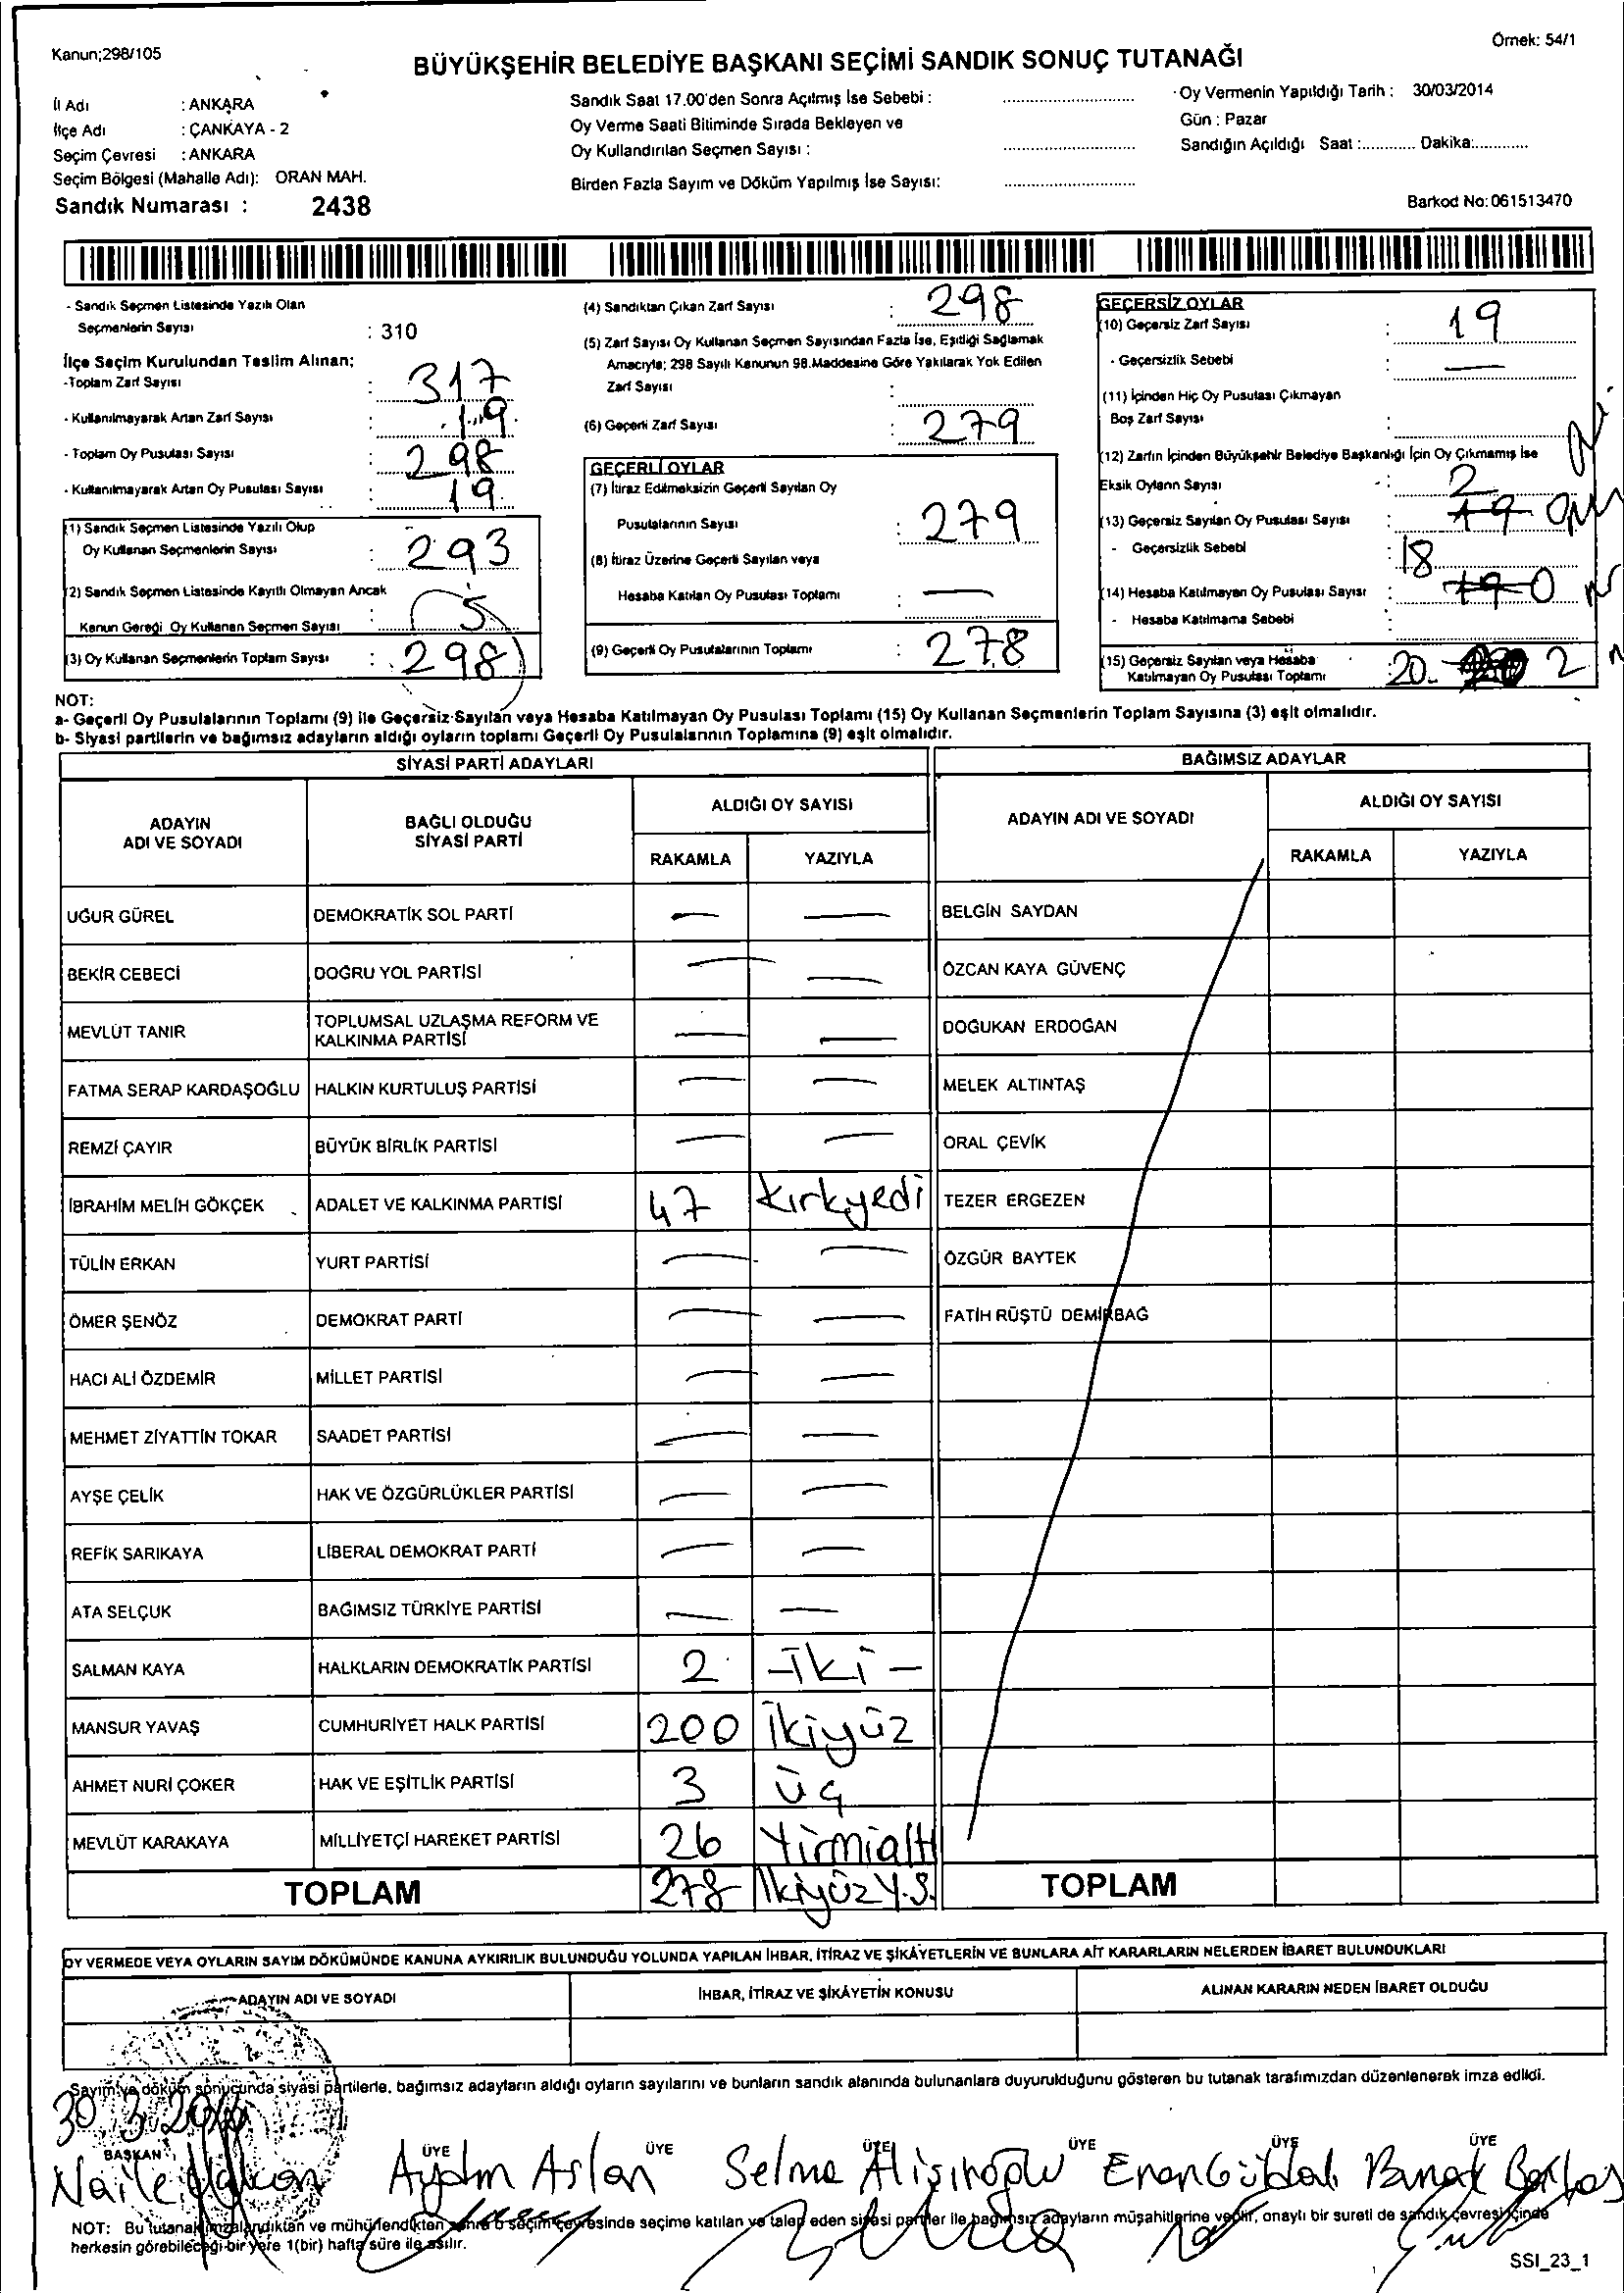 Kanun;298/105
Örnek: 54/1
BÜYÜKŞEHİR BELEDİYE BAŞKANI SEÇİMİ SANDIK SONUÇ TUTANAĞI
İl Adı : ANKARA
İlçe Adı : ÇANKAYA - 2
Seçim Çevresi : ANKARA
Seçim Bölgesi (Mahalle Adı): ORAN MAH.
Sandık Numarası : 2438
Sandık Saat 17.00'den Sonra Açılmış İse Sebebi :
Oy Verme Saati Bitiminde Sırada Bekleyen ve
Oy Kullandırılan Seçmen Sayısı :
Birden Fazla Sayım ve Döküm Yapılmış İse Sayısı:
Oy Vermenin Yapıldığı Tarih : 30/03/2014
Gün : Pazar
Sandığın Açıldığı Saat :............. Dakika:.............
Barkod No: 061513470
- Sandık Seçmen Listesinde Yazılı Olan
Seçmenlerin Sayısı : 310
İlçe Seçim Kurulundan Teslim Alınan;
-Toplam Zarf Sayısı : 317
- Kullanılmayarak Artan Zarf Sayısı : 19
- Toplam Oy Pusulası Sayısı : 298
- Kullanılmayarak Artan Oy Pusulası Sayısı : 19
(1) Sandık Seçmen Listesinde Yazılı Olup
Oy Kullanan Seçmenlerin Sayısı : 293
(2) Sandık Seçmen Listesinde Kayıtlı Olmayan Ancak
Kanun Gereği Oy Kullanan Seçmen Sayısı : 5
(3) Oy Kullanan Seçmenlerin Toplam Sayısı : 298
(4) Sandıktan Çıkan Zarf Sayısı : 298
(5) Zarf Sayısı Oy Kullanan Seçmen Sayısından Fazla İse, Eşitliği Sağlamak
Amacıyla; 298 Sayılı Kanunun 98.Maddesine Göre Yakılarak Yok Edilen
Zarf Sayısı :
(6) Geçerli Zarf Sayısı : 279
GEÇERLİ OYLAR
(7) İtiraz Edilmeksizin Geçerli Sayılan Oy
Pusulalarının Sayısı : 279
(8) İtiraz Üzerine Geçerli Sayılan veya
Hesaba Katılan Oy Pusulası Toplamı : —
(9) Geçerli Oy Pusulalarının Toplamı : 278
GEÇERSİZ OYLAR
(10) Geçersiz Zarf Sayısı : 19
- Geçersizlik Sebebi : —
(11) İçinden Hiç Oy Pusulası Çıkmayan
Boş Zarf Sayısı :
(12) Zarfın İçinden Büyükşehir Belediye Başkanlığı İçin Oy Çıkmamış İse
Eksik Oyların Sayısı : 2
(13) Geçersiz Sayılan Oy Pusulası Sayısı : 19
- Geçersizlik Sebebi : 18
(14) Hesaba Katılmayan Oy Pusulası Sayısı : 19 0
- Hesaba Katılmama Sebebi :
(15) Geçersiz Sayılan veya Hesaba
Katılmayan Oy Pusulası Toplamı : 20 2
NOT:
a- Geçerli Oy Pusulalarının Toplamı (9) ile Geçersiz Sayılan veya Hesaba Katılmayan Oy Pusulası Toplamı (15) Oy Kullanan Seçmenlerin Toplam Sayısına (3) eşit olmalıdır.
b- Siyasi partilerin ve bağımsız adayların aldığı oyların toplamı Geçerli Oy Pusulalarının Toplamına (9) eşit olmalıdır.
SİYASİ PARTİ ADAYLARI
ADAYIN ADI VE SOYADI
BAĞLI OLDUĞU SİYASİ PARTİ
ALDIĞI OY SAYISI
RAKAMLA YAZIYLA
UĞUR GÜREL DEMOKRATİK SOL PARTİ — —
BEKİR CEBECİ DOĞRU YOL PARTİSİ — —
MEVLÜT TANIR TOPLUMSAL UZLAŞMA REFORM VE KALKINMA PARTİSİ — —
FATMA SERAP KARDAŞOĞLU HALKIN KURTULUŞ PARTİSİ — —
REMZİ ÇAYIR BÜYÜK BİRLİK PARTİSİ — —
İBRAHİM MELİH GÖKÇEK ADALET VE KALKINMA PARTİSİ 47 kırkyedi
TÜLİN ERKAN YURT PARTİSİ — —
ÖMER ŞENÖZ DEMOKRAT PARTİ — —
HACI ALİ ÖZDEMİR MİLLET PARTİSİ — —
MEHMET ZİYATTİN TOKAR SAADET PARTİSİ — —
AYŞE ÇELİK HAK VE ÖZGÜRLÜKLER PARTİSİ — —
REFİK SARIKAYA LİBERAL DEMOKRAT PARTİ — —
ATA SELÇUK BAĞIMSIZ TÜRKİYE PARTİSİ — —
SALMAN KAYA HALKLARIN DEMOKRATİK PARTİSİ 2 -iki-
MANSUR YAVAŞ CUMHURİYET HALK PARTİSİ 200 İkiyüz
AHMET NURİ ÇOKER HAK VE EŞİTLİK PARTİSİ 3 üç
MEVLÜT KARAKAYA MİLLİYETÇİ HAREKET PARTİSİ 26 Yirmialtı
TOPLAM 278 İkiyüzY.S.
BAĞIMSIZ ADAYLAR
ADAYIN ADI VE SOYADI
ALDIĞI OY SAYISI
RAKAMLA YAZIYLA
BELGİN SAYDAN
ÖZCAN KAYA GÜVENÇ
DOĞUKAN ERDOĞAN
MELEK ALTINTAŞ
ORAL ÇEVİK
TEZER ERGEZEN
ÖZGÜR BAYTEK
FATİH RÜŞTÜ DEMİRBAĞ
TOPLAM
OY VERMEDE VEYA OYLARIN SAYIM DÖKÜMÜNDE KANUNA AYKIRILIK BULUNDUĞU YOLUNDA YAPILAN İHBAR, İTİRAZ VE ŞİKÂYETLERİN VE BUNLARA AİT KARARLARIN NELERDEN İBARET BULUNDUKLARI
ADAYIN ADI VE SOYADI
İHBAR, İTİRAZ VE ŞİKÂYETİN KONUSU
ALINAN KARARIN NEDEN İBARET OLDUĞU
Sayım ve döküm sonucunda siyasi partilerle, bağımsız adayların aldığı oyların sayılarını ve bunların sandık alanında bulunanlara duyurulduğunu gösteren bu tutanak tarafımızdan düzenlenerek imza edildi.
30.3.2014
BAŞKAN ÜYE ÜYE ÜYE ÜYE ÜYE ÜYE
Naile Aydın Aslan Selma Alişinoğlu
NOT: Bu tutanak imzalandıktan ve mühürlendikten sonra o seçim çevresinde seçime katılan ve talep eden siyasi partiler ile bağımsız adayların müşahitlerine verilir, onaylı bir sureti de sandık çevresi içinde
herkesin görebileceği bir yere 1(bir) hafta süre ile asılır.
SSI_23_1